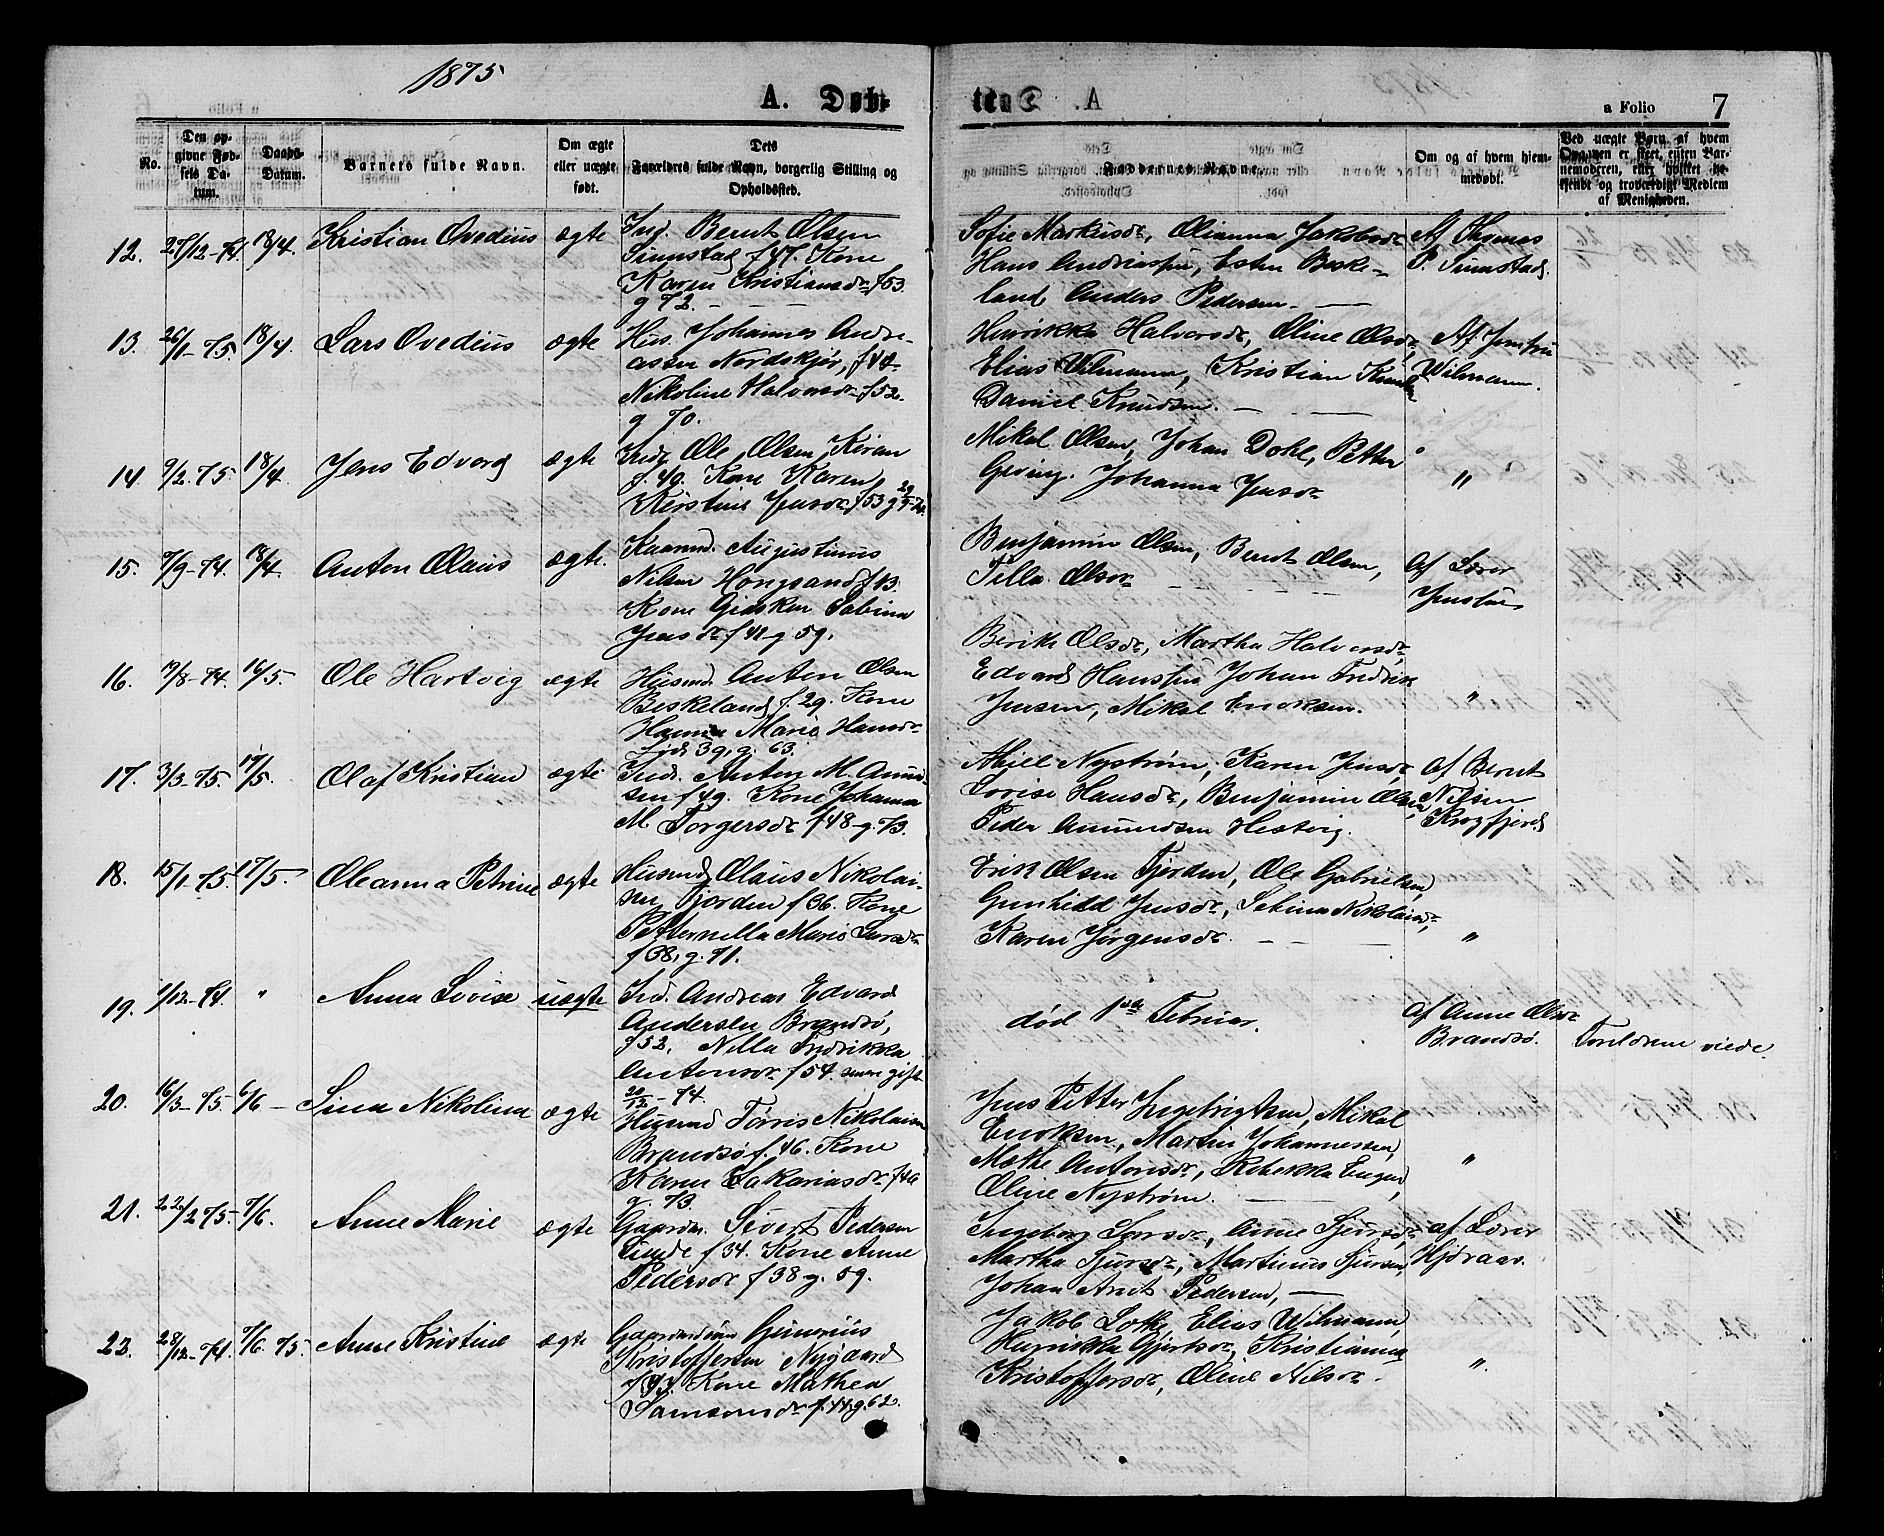 1875
A. Døb-
a Folio 7
No.
Den op-
givne Fød-
sels Da-
tum.
Daabs-
Datum.
Barnets fulde Navn.
Om ægte
eller uægte
født.
Dets
Forældres fulde Navn, borgerlig Stilling og
Opholdssted.
Faddernes Navne.
Om og af hvem hjem-
medøbt.
Ved uægte Børn, af hvem
Opgaven er skeet, enten Bar-
nemoderen, eller hvilket be-
kjendt og troværdigt Medlem
af Menigheden.
12. 27/12-74. 18/4. Kristian Ovedius ægte
Ind. Bernt Olsen
Sumstad f 47. Kone
Karen Kristiansdr f 53.
g 72.
Sofie Markusdr, Olianna Jakobsdr
Hans Andreassen, Ester Beske-
land, Anders Pedersen.
Af Thomas
P. Sumstad.
13. 26/1-75. 18/4 Lars Ovedius ægte
Hus. Johannes Andre-
assen Nordskjør, f 42
Nikoline Halvorsdr f 52.
g 70.
Henrikka Halvorsdr, Oline Olsdr,
Elias Wilmann, Kristian Knuds
Daniel Knudsen.
Af Jomfru
Wilmann.
14. 9/2 75. 18/4. Jens Edvard ægte
Inde Ole Olsen Kiran
f. 49. Kone Karen
Kirstine Jensdr f 53 g
Mikal Olsen, Johan Dokl, Petter
Geving. Johanna Jensdr
"
15. 7/9-74. 18/4. Anton Olaus ægte.
Kaarmd. Augustinus
Nilsen Hongsand f 43.
Kone Gjesken Sabina
Jensdr f 41 g 59.
Benjamin Olsen, Bernt Olsen,
Tilla Olsdr
Af Lærer
16. 17/8-74. 16/5. Ole Hartvig ægte
Husmd. Anton Olsen
Beskeland f. 29. Kone
Hanna Marie Hansdr
født 39, g. 63.
Berit Olsdr, Martha Halvorsdr,
Edvard Hansen Johan Fredrik
Jensen, Mikal Eriksen.
"
17. 3/3-75. 17/5. Olaf Kristian ægte
Ind. Anton M. Amund-
sen f 49. Kone Johanna
M. Torgersdr f 48 - g. 73.
Abjell Nystrøm, Karen Jensdr,
Lovise Hansdr, Benjamin Olsen,
Peder Amundsen Hestvig.
af Bernt
Nilsen
Krogfjord
18. 15/1-75. 17/5. Oleanna Petrine ægte
Husmd Olaus Nikolai-
sen Fjorden f 36. Kone
Petternella Marie Larsdr
f 38, g. 71.
Erik Olsen Fjorden, Ole Gabrielsen,
Gunhild Jensdr, Sebina Nikolaisdr,
Karen Jørgensdr.
"
19. 1/12-74. " Anna Lovise uægte
Ind. Andreas Edvard
Andersen Brandsø,
f 52, Nilla Fredrikka
Antonsdr f 54. senere gift
20/12-74.
død 1ste Februar.
af Anne Olsdr
Brandsø.
Forældrene viede.
20. 16/3-75. 6/6 - Sina Nikolina ægte
Husmd Tørris Nikolaisen
Brandsø f. 46. Kone
Karen Sakariasdr f 49
g. 73.
Jens Petter Ingebrigtsen, Mikal
Eriksen, Martin Johannessen,
Mathe Antonsdr, Rebekka Engen,
Oline Nystrøm.
"
21. 22/2 75. 7/6. Anne Marie ægte
Gaardm. Sivert Pedersen
Sunde f 34. Kone Anne
Pedersdr f 38 g. 59.
Ingeborg Larsdr, Anne Sjursdr,
Martha Sjursdr, Martinus Sjursen,
Johan Arnt Pedersen,
af Lærer
Hjøraas.
22. 28/12-74. 7/6. 75. Anne Kristine ægte
Gaardmand Generius
Kristoffersen Nygaard
f 43. Kone Mathea
Samsonsdr f. 44. g. 62.
Jakob Loke, Elias Wilmann,
Henrikka Gjertsdr, Kristianna
Kristoffersdr, Oline Nilsdr.
"